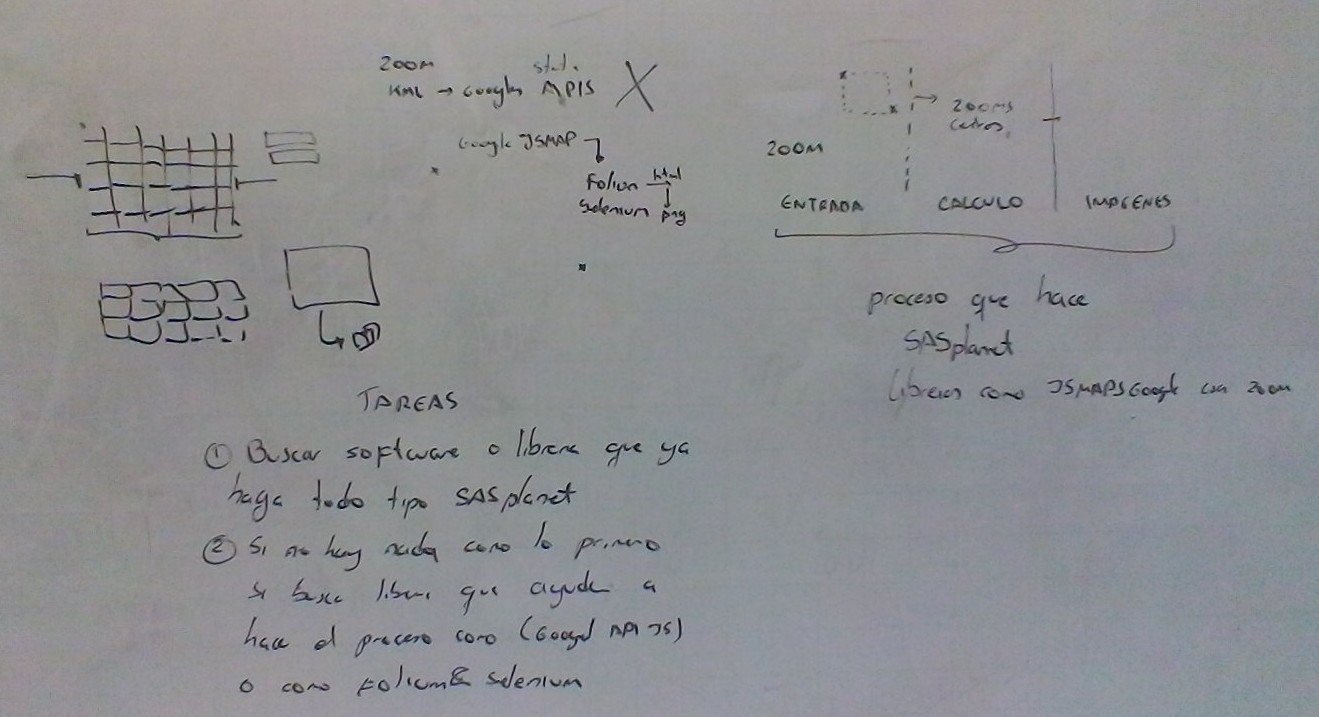 ZOOM
KML → Google APIS X
Google JSMAP
Folium → html
Selenium png
ZOOM
→ ZOOMS
ENTRADA
CALCULO
IMAGENES
proceso que hace
SASplanet
como JSMAPSGoogle con zoom
TAREAS
① Buscar software o libreria que ya
haga todo tipo SASplanet
② Si no hay nada como lo primero
se busca que ayude a
hace el proceso como (Googel API JS)
o como Folium & Selenium